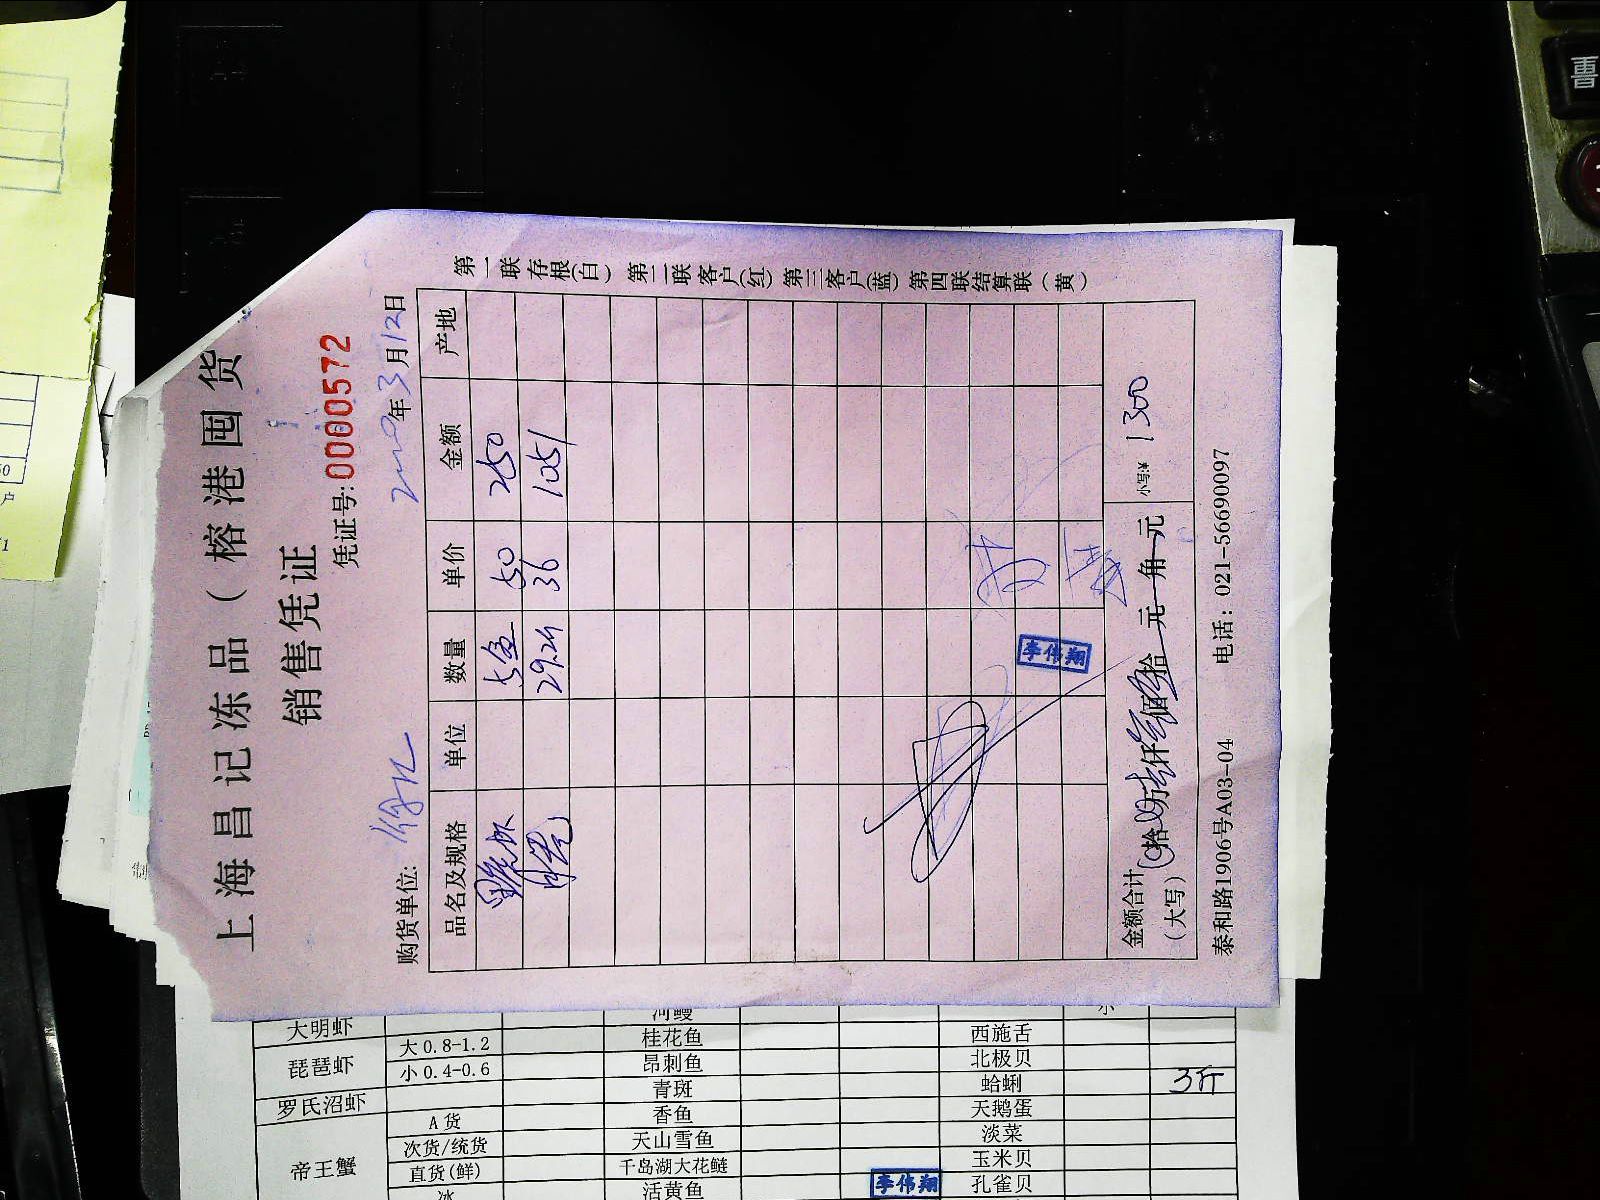 上海昌记冻品（榕港囤货
销售凭证
凭证号:0000572
购货单位:
年3月12日
品名及规格 单位 数量 单价 金额 产地
5盒 50 250
29.2斤 36 1051
李伟翔
金额合计（大写） 拾 万 仟 佰 拾 元 角 元 小写:¥ 1300
泰和路1906号A03-04 电话：021-56690097
第一联存根(白) 第二联客户(红) 第三客户(蓝) 第四联结算联（黄）
大明虾 河鳗 小
琵琶虾 大0.8-1.2 桂花鱼 西施舌
小0.4-0.6 昂刺鱼 北极贝
罗氏沼虾 青斑 蛤蜊 3斤
帝王蟹 A货 香鱼 天鹅蛋
次货/统货 天山雪鱼 淡菜
直货(鲜) 千岛湖大花鲢 玉米贝
冰 活黄鱼 李伟翔 孔雀贝
重